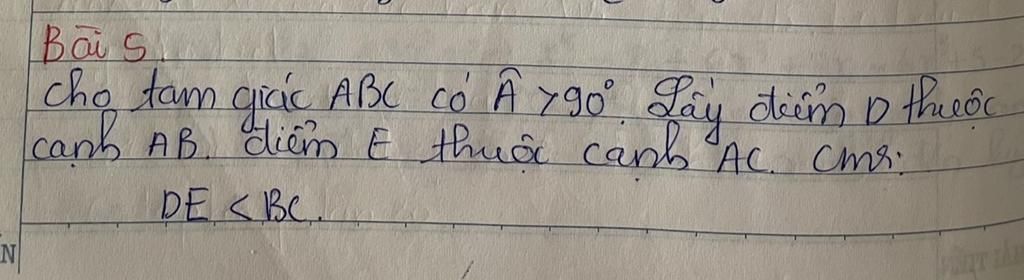 Bài 5.
Cho tam giác ABC có Â >90°. Lấy điểm D thuộc
cạnh AB. điểm E thuộc cạnh AC. Cmr:
DE < BC.
N